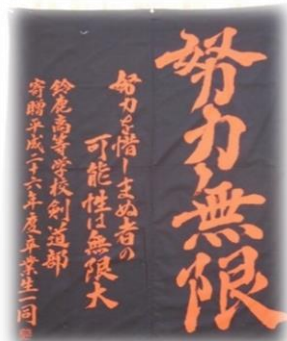 努力無限
努力を惜しまぬ者の
可能性は無限大
鈴鹿高等学校剣道部
寄贈平成二十六年度卒業生一同